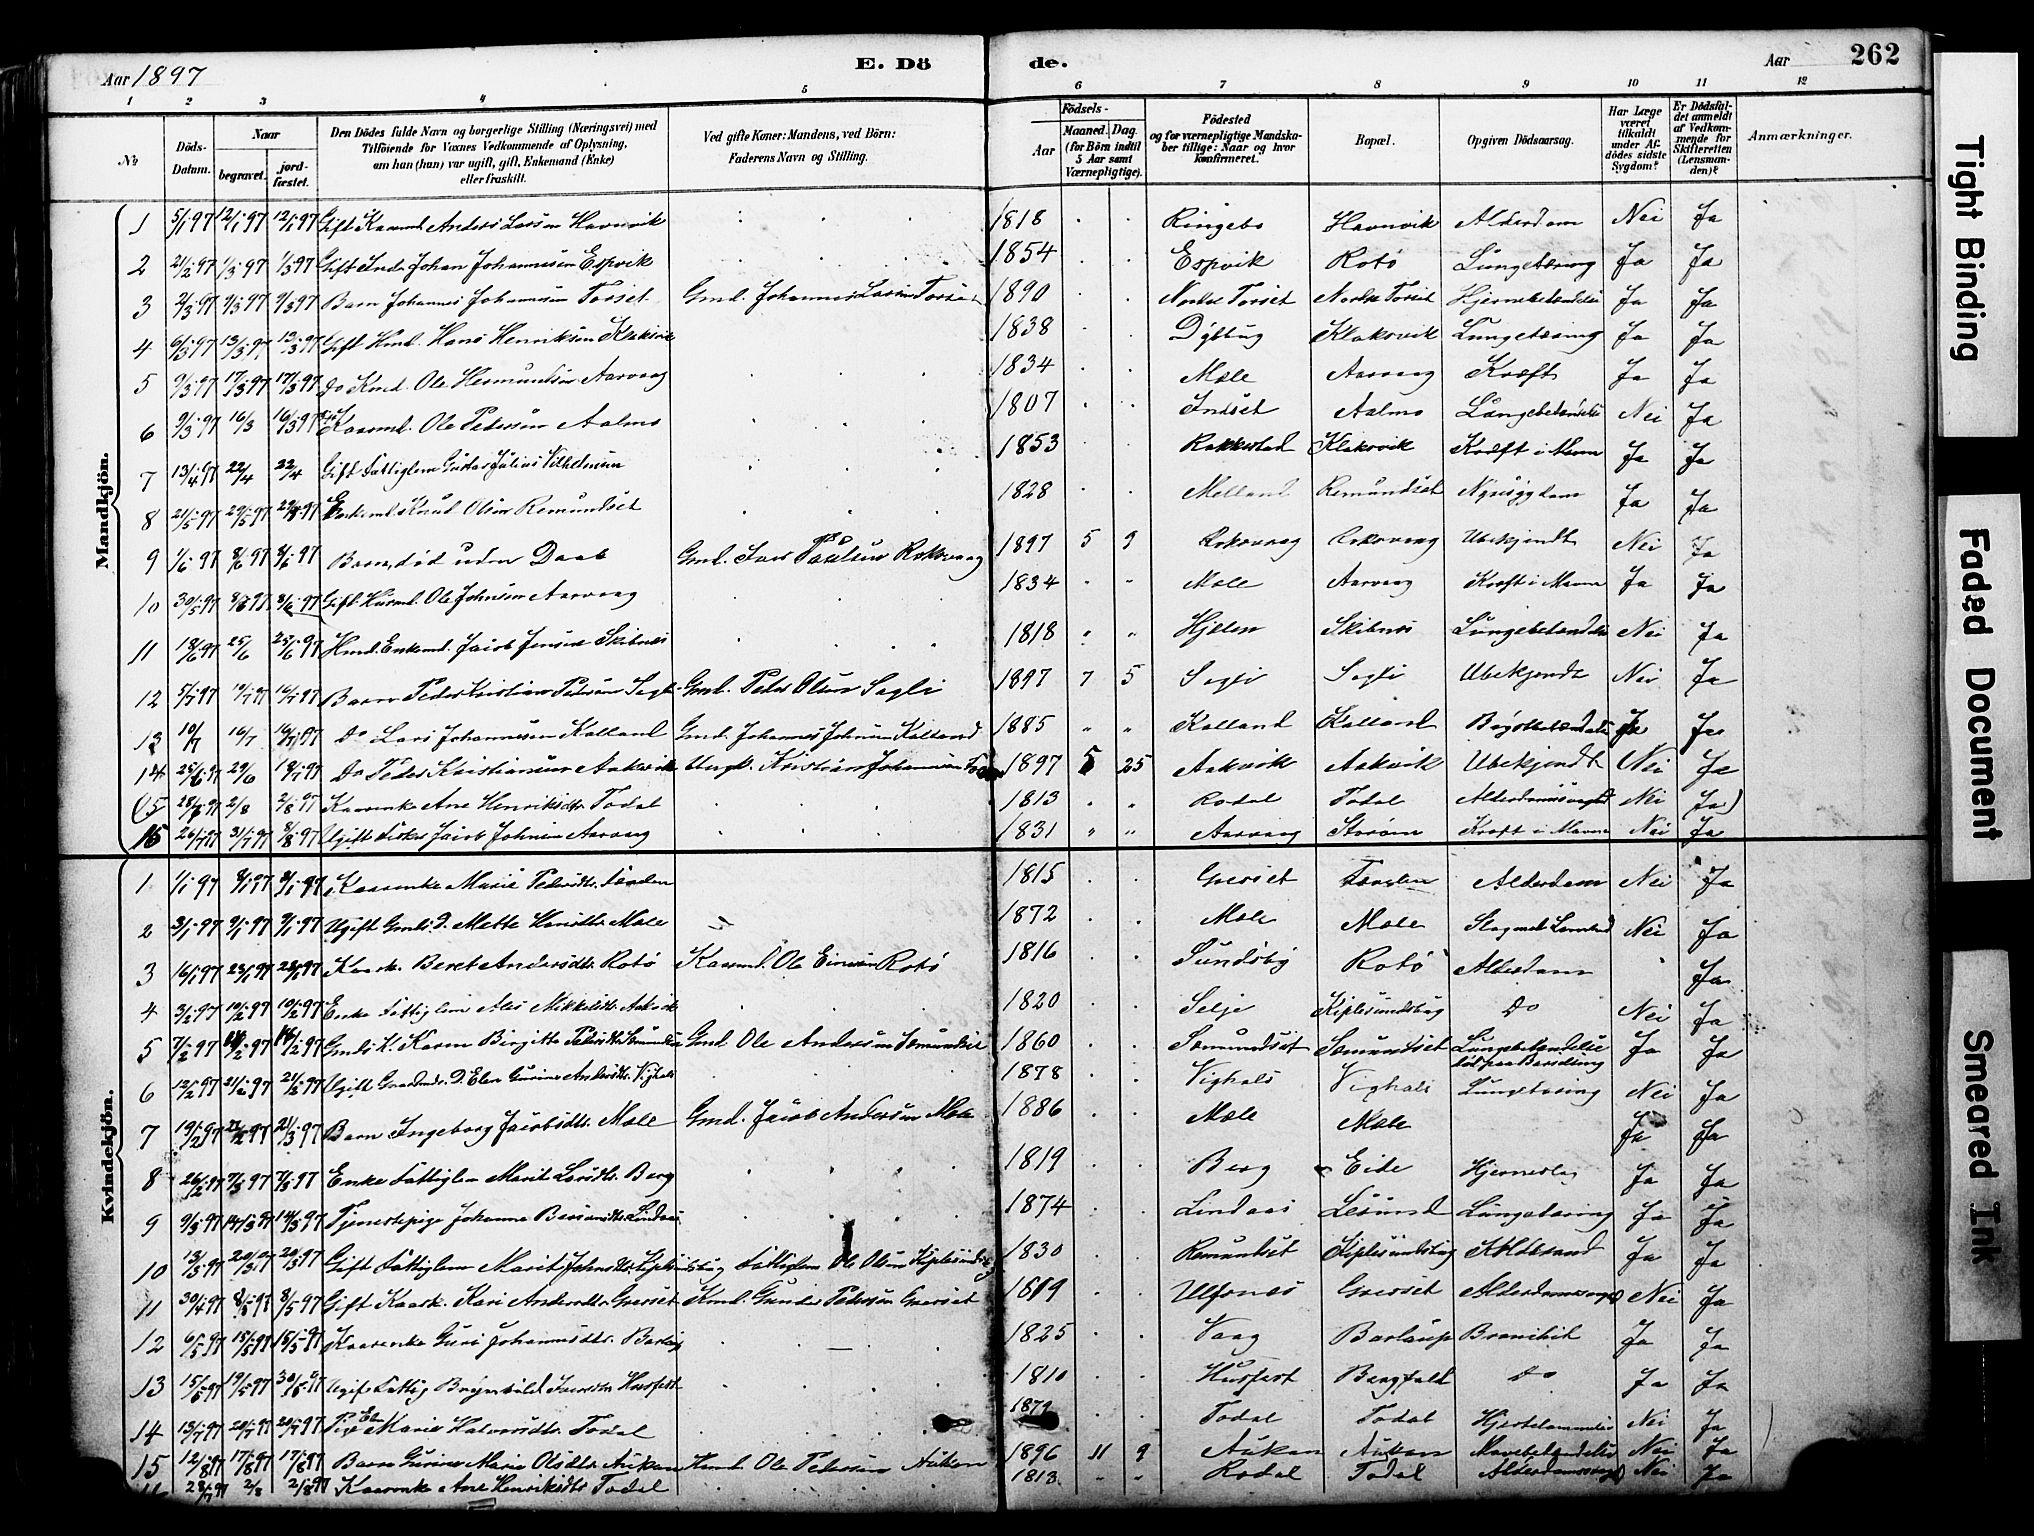 Aar 1897 E. Dö de. Aar 262
1 2 3 4 5 6 7 8 9 10 11 12
No Döds-Datum. Naar begravet. jord-fæstet. Den Dödes fulde Navn og borgerlige Stilling (Næringsvei) med Tilföiende for Voxnes Vedkommende af Oplysning, om han (hun) var ugift, gift, Enkemand (Enke) eller fraskilt. Ved gifte Koner: Mandens, ved Börn: Faderens Navn og Stilling. Födsels- Aar Maaned. Dag. (for Börn indtil 5 Aar samt Værnepligtige). Födested og for værnepligtige Mandskaber tillige: Naar og hvor konfirmeret. Bopæl. Opgiven Dödsaarsag. Har Læge været tilkaldt under Afdödes sidste Sygdom? Er Dödsfaldet anmeldt af Vedkommende for Skifteretten (Lensmanden)? Anmærkninger.
Mandkjön.
1 5/1 97 12/1 97 12/1 97 Gift Kaarmd. Anders Larsen Havnvik 1818 Ringebo Havnvik Alderdom Nei Ja
2 21/2 97 1/3 97 1/3 97 Gift Inds. Johan Johannesen Espvik 1854 Espvik Rotö Lungetæring Ja Ja
3 2/3 97 9/3 97 9/3 97 Barn Johannes Johannesen Torset Gmd. Johannes Larsen Torset 1890 Nordre Torset Nordre Torset Hjernebetændelse Ja Ja
4 6/3 97 13/3 97 13/3 97 Gift Hmd. Hans Henriksen Klaksvik 1838 Klaksvik Lungetæring Ja Ja
5 9/3 97 17/3 97 17/3 97 Do Kmd. Ole Hermundsen Aarvaag 1834 Møle Aarvaag Kræft Ja Ja
6 9/3 97 16/3 16/3 97 Kaarmd. Ole Pedersen Aalmo 1807 Indset Aalmo Lungebetændelse Nei Ja
7 13/4 97 22/4 22/4 Gift Fattiglem Gustav Julius Vilhelmsen 1853 Rakkestad Klaksvik Kræft i Maven Ja Ja
8 21/5 97 29/5 97 29/5 97 Enkemd. Knud Olsen Remundset 1828 Melland Remundset Nyresygdom Ja Ja
9 1/6 97 8/6 97 8/6 97 Barn, död uden Daab Gmd. Iver Paulsen Rokvaag 1897 5 9 Rokvaag Rokvaag Ubekjendt Nei Ja
10 30/5 97 8/6 97 8/6 97 Gift Husmd. Ole Johnsen Aarvaag 1834 Møle Aarvaag Kræft i Maven Ja Ja
11 18/6 97 25/6 25/6 97 Hmd. Enkemd. Jacob Jensen Skibnes 1818 Hjelen Skibnes Lungebetændelse Nei Ja
12 5/7 97 16/7 97 16/7 97 Barn Peder Kristian Petersen Sagli Gmd. Peder Olsen Sagli 1897 7 5 Sagli Sagli Ubekjendt Nei Ja
13 10/7 16/7 16/7 97 Do Lars Johannesen Kalland Gmd. Johannes Johnsen Kalland 1885 Kalland Kalland Ja Ja
14 25/6 97 29/6 18/7 97 Do Peder Kristiansen Aakvik Ungk. Kristian Johannsen 1897 5 25 Aakvik Aakvik Ubekjendt Nei Ja
(15 28/7 97 2/8 2/8 97 Kaarenke Ane Henriksdtr. Todal 1813 Rodal Todal Alderdomssvaghed Nei Ja)
15 26/7 97 31/7 97 8/8 97 Ugift Fisker Jacob Johnsen Aarvaag 1831 Aarvaag Storøen Kræft i Maven Nei Ja
Kvindekjön.
1 1/1 97 8/1 97 8/1 97 Kaarenke Marie Pedersdtr. Tønden 1815 Greiset Alderdom Nei Ja
2 3/1 97 9/1 97 9/1 97 Ugift Gmds. D. Mette Hansdtr. Møle 1872 Møle Møle Nei Ja
3 16/1 97 23/1 97 23/1 97 Kaark. Beret Andersdtr. Rotö Kaarmd. Ole Einarsen Rotö 1816 Sundsbø Rotö Alderdom Ja
4 3/2 97 10/2 97 10/2 97 Enke Fattiglem Mikkelsdtr. Aakvik 1820 Selje Kiplesundsbug Do Nei Ja
5 7/2 97 14/2 97 14/2 97 Gmds. K. Karen Birgitte Pedersdtr. Somundset Gmd. Ole Andersen Somundset 1860 Somundset Somundset Lungebetændelse Ja Ja
6 12/2 97 21/2 97 21/2 97 Ugift Gaardmds. D. Elen Gurine Andersdtr. Vighals 1878 Vighals Vighals Lungetæring Nei Ja
7 19/2 97 27/2 97 21/3 97 Barn Ingeborg Jacobsdtr. Møle Gmd. Jacob Andersen Møle 1886 Møle Møle Ja Ja
8 26/2 97 7/3 97 7/3 97 Enke Fattiglem Marit Larsdtr. Berg 1819 Berg Eide Ja Ja
9 9/3 97 14/3 97 14/3 97 Tjenestepige Johanna Lindaas 1874 Lindaas Lesund Lungetæring Ja Ja
10 13/3 97 20/3 97 20/3 97 Gift Fattiglem Marit Johnsdtr. Kiplesundsbug Fattiglem Ole Olsen Kiplesundsbug 1830 Remundset Kiplesundsbug Koldbrand Ja Ja
11 30/4 97 8/5 97 8/5 97 Gift Kaark. Kari Andersdtr. Greiset Kmd. Gunder Pedersen Greiset 1819 Ulfsnes Greiset Alderdomssvaghed Nei Ja
12 6/5 97 15/5 97 15/5 97 Kaarenke Guri Johannesdtr. Barlaup 1825 Vaag Barlaup Bronchit Ja Ja
13 15/5 97 19/5 97 30/5 97 Ugift Fattig Brynhild Iversdtr. Husfest 1810 Husfest Bergfald Do Ja Ja
14 13/7 97 20/7 97 20/7 97 Pige Elen Marie Halvorsdtr. Todal 1879 Todal Todal Nei Ja
15 12/8 97 17/8 97 17/8 97 Barn Gurine Marie Olsdtr. Aukan Hmd. Ole Pedersen Aukan 1896 11 9 Aukan Aukan Mavebetændelse Nei Ja
28/7 97 2/8 2/8 97 Kaarenke Ane Henriksdtr. Todal 1813 Rodal Todal Alderdomssvaghed Nei Ja
Tight Binding
Faded Document
Smeared Ink